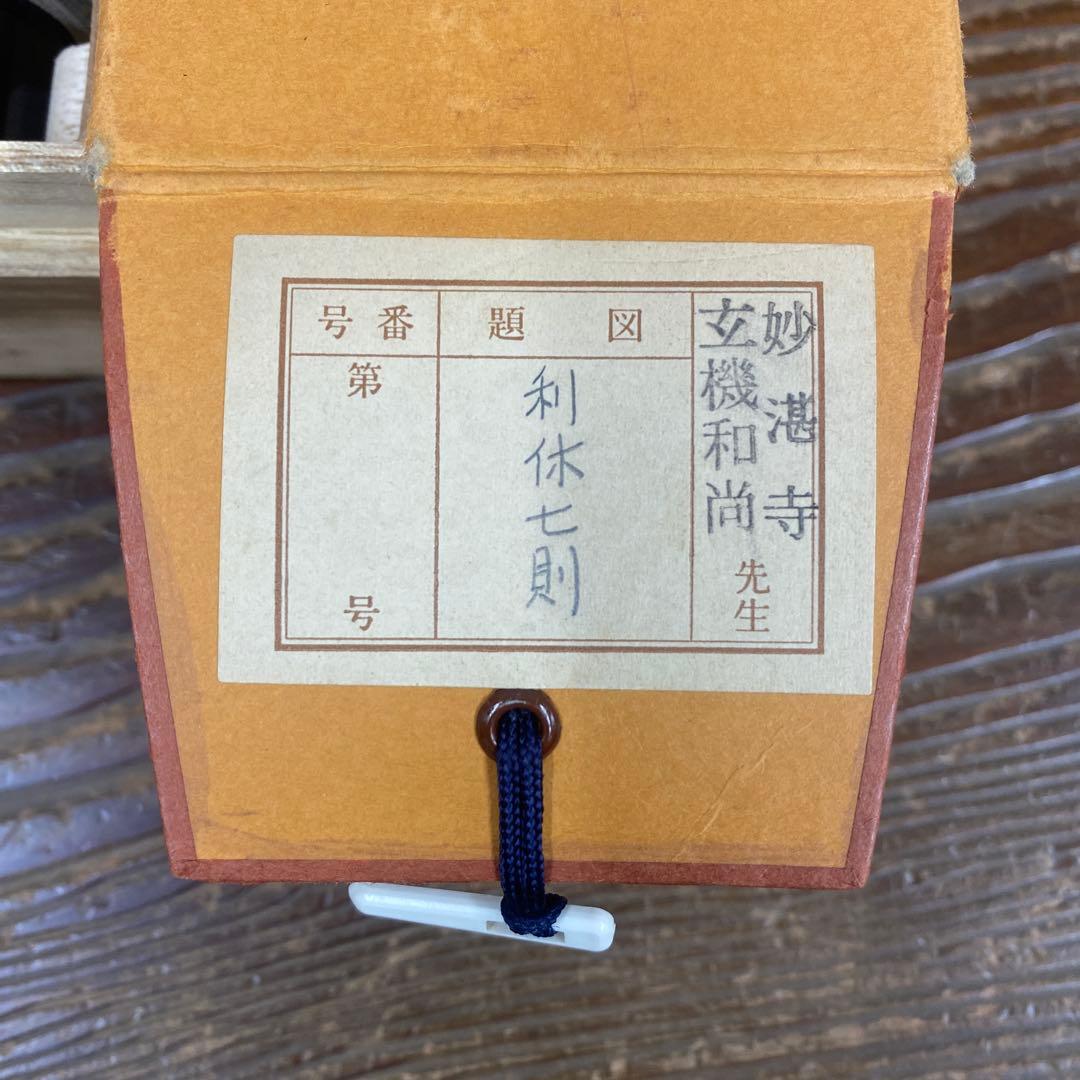 妙湛寺
玄機和尚
先生
図題
利休七則
番号
第
号